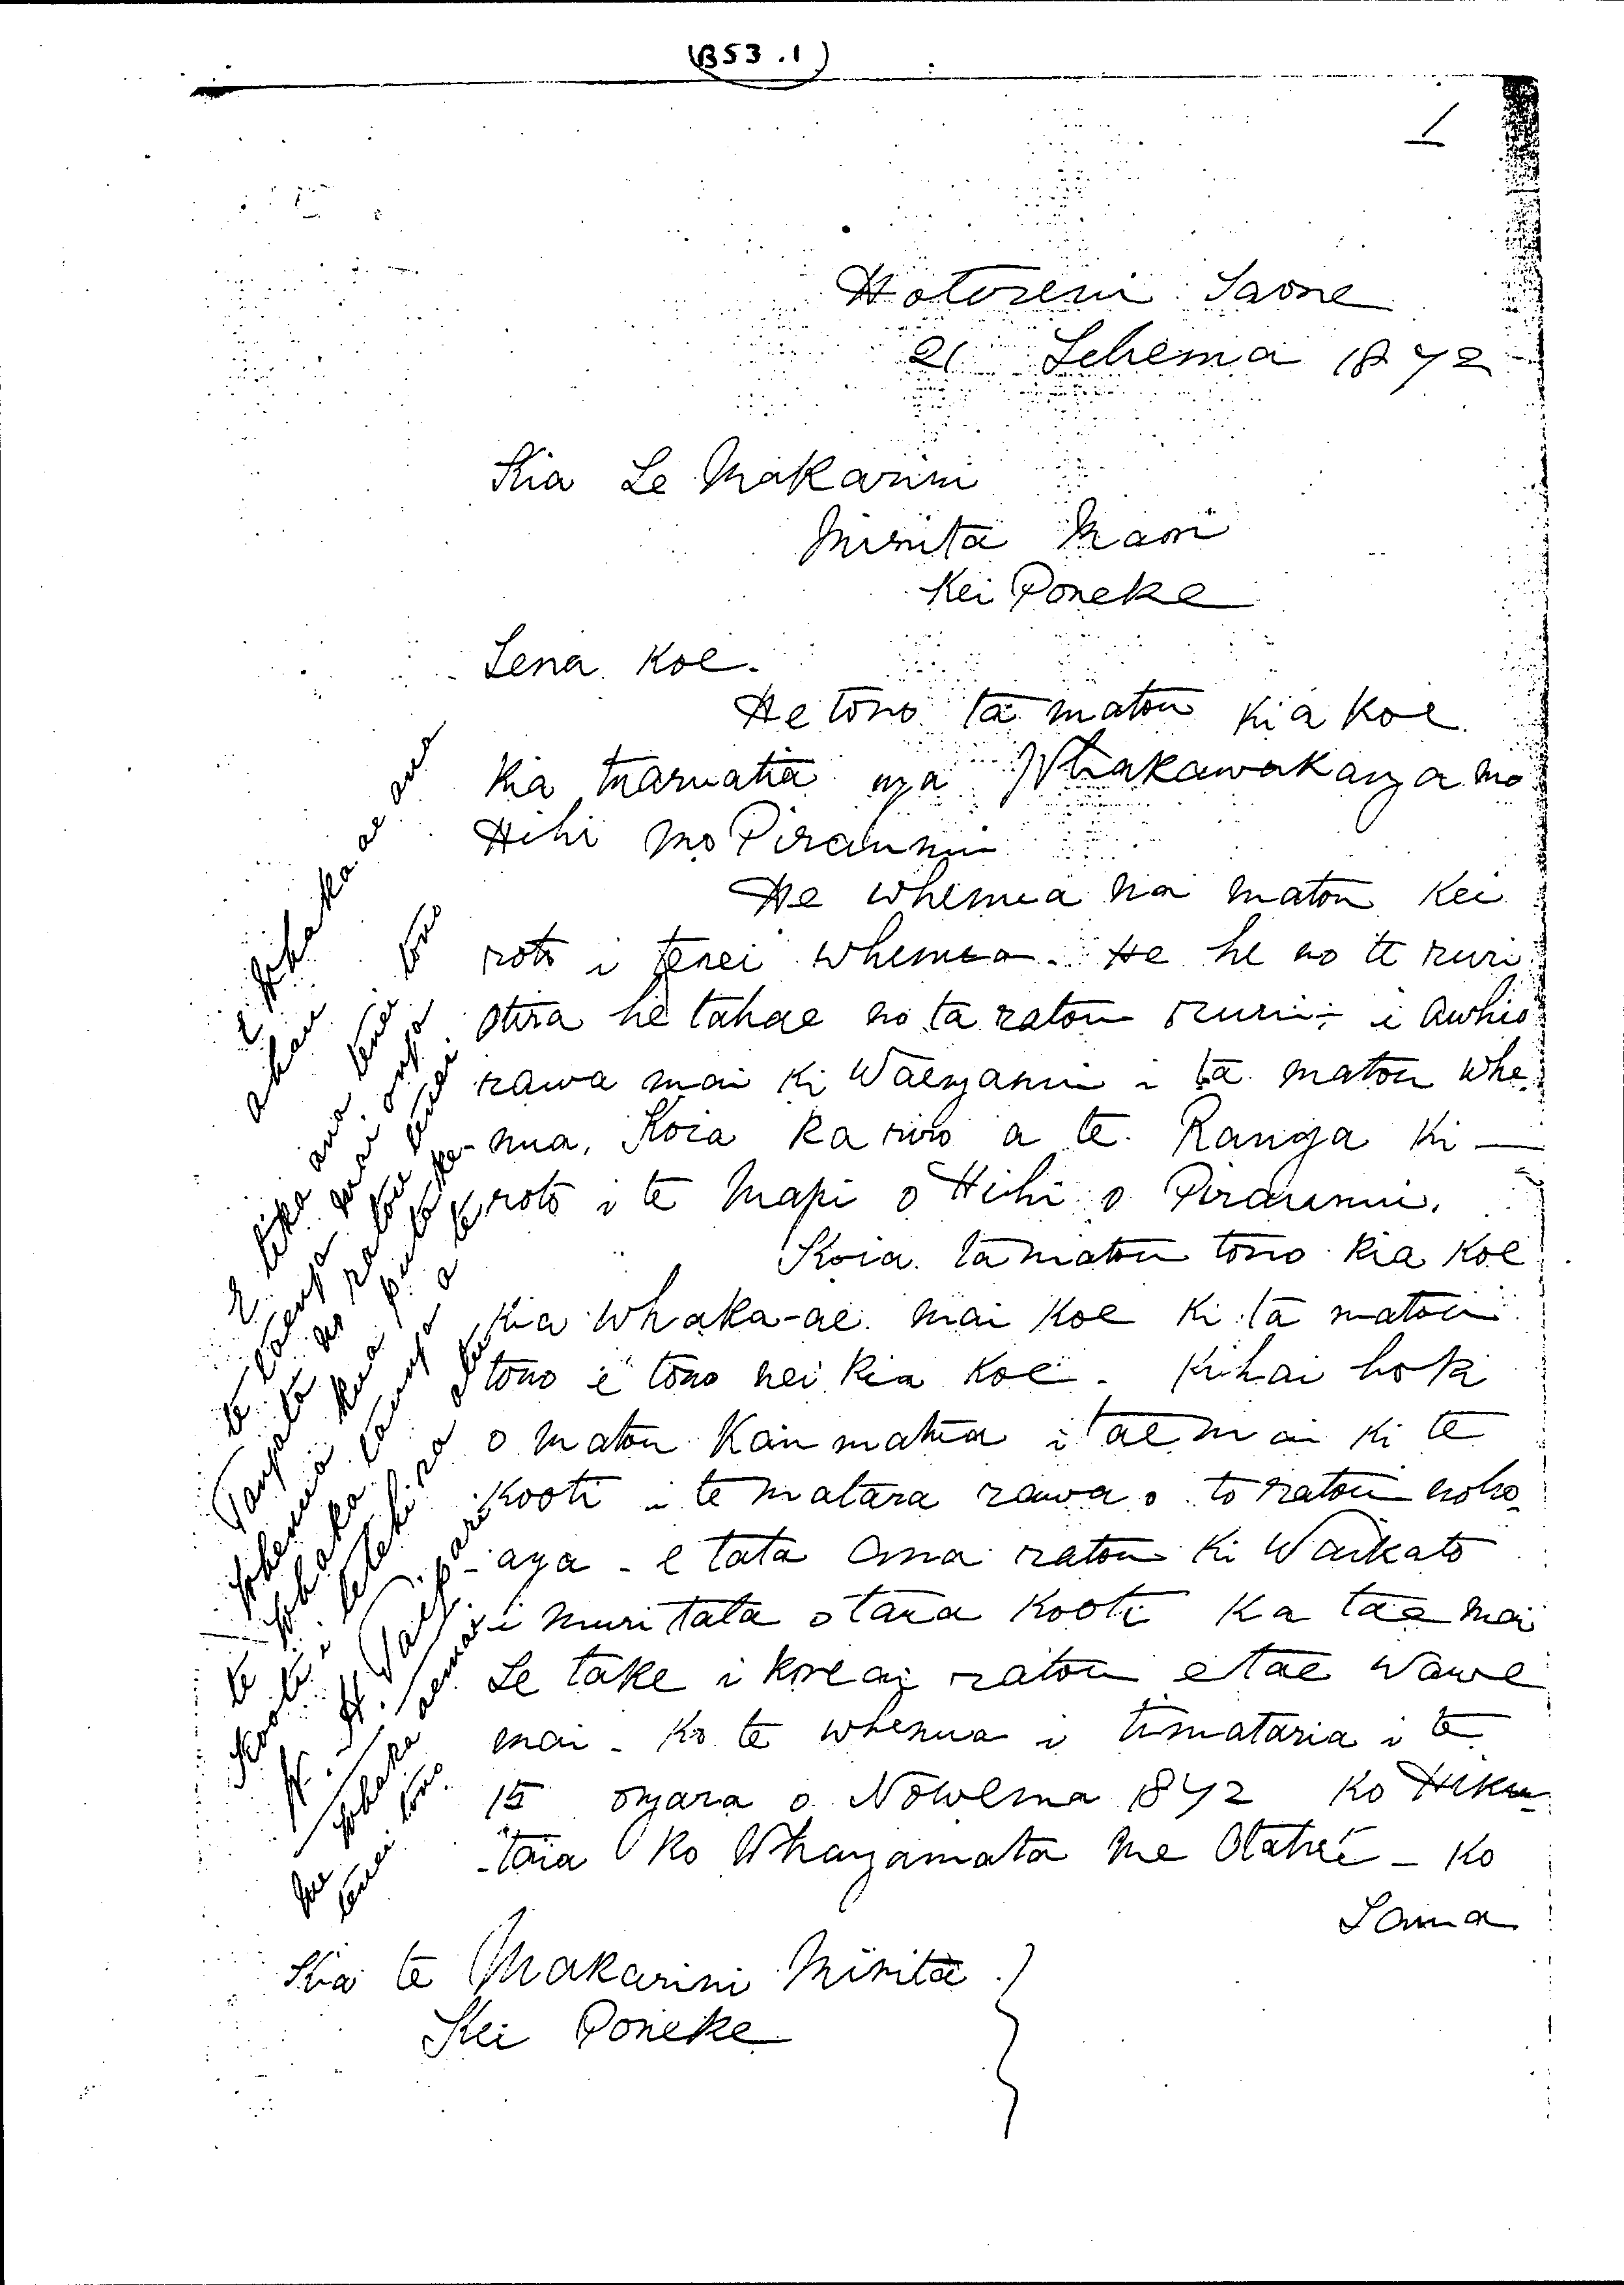 (B53.1)
1
Hotoreni Taone
21 Tehema 1872
Kia Te Makarini
Minita Maori
Kei Poneke
Tena koe.
He tono ta matou kia koe
kia tuaruatia nga Whakawakanga mo
Hihi mo Piraunui
He whenua na matou kei
roto i tenei whenua. He he no te ruri
otira he tahae no ta ratou ruri - i awhio
rawa mai ki Waenganui i ta matou whe
nua. Koia ka riro a te Ranga ki -
roto i te Mapi o Hihi o Piraunui.
Koia ta matou tono kia koe
kia whaka-ae mai koe ki ta matou
tono e tono nei kia koe. Kihai hoki
o matou Kaumatua i tae mai ki te
Kooti i te matara rawa o to ratou noho-
-anga - e tata ana ratou ki Waikato
i muri tata o taua Kooti ka tae mai
Te take i kore ai ratou e tae wawe
mai - Ko te whenua i timataria i te
15 ongara o Nowema 1872 Ko Hiku-
-taia Ko Whangamata me Otahu - Ko
Taua
Kia te Makarini Minita
Kei Poneke
E Whaka ae ana
ahau
tenei tono
E tika ana tenei
te taenga mai
Tangata no ratou tenei
whenua kua
te whaka
Kooti i
W. H. Taipari
me whaka ae mai
tenei tono